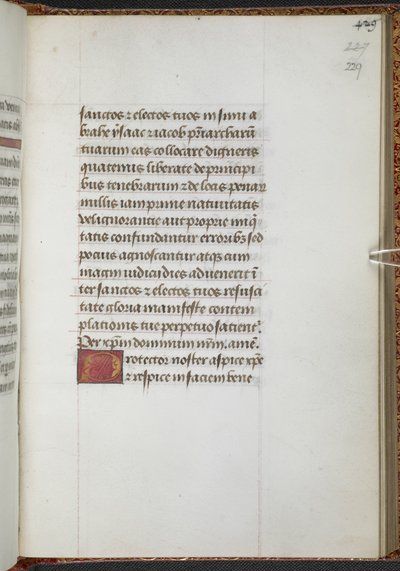 429
227
229
sanctos ⁊ electos tuos in sinu a
brahe ysaac ⁊ iacob pr̄iarcharū
tuarum eas collocare digneris
quatenus liberate de principi
bus tenebrarum ⁊ de locis penaꝝ
nullis iam prime natiuitatis
vel ignorantie aut proprie iniq̄
tatis confundantur erroribꝫ sed
pocius agnoscantur atqꝫ cum
magni iudicii dies aduenerit ī
ter sanctos ⁊ electos tuos resusci
tate gloria manifeste contem
plationis tue perpetuo sacient᷑.
Per xp̄m dominum nr̄m. amē.
Protector noster aspice xp̄e
⁊ respice in faciem bene